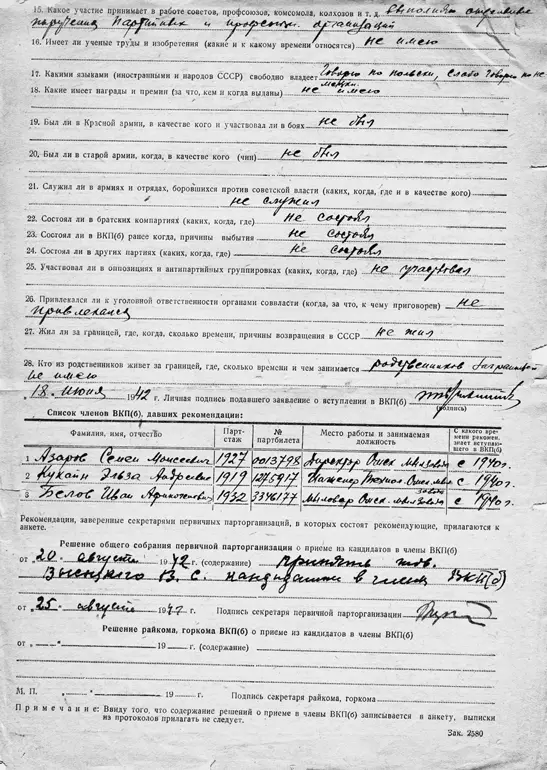 15. Какое участие принимает в работе советов, профсоюзов, комсомола, колхозов и т. д. выполняю отдельные
поручения партийных и профсоюзн. организаций
16. Имеет ли ученые труды и изобретения (какие и к какому времени относятся) не имею
17. Какими языками (иностранными и народов СССР) свободно владеет Говорю по польски, слабо говорю по не
мецки.
18. Какие имеет награды и премии (за что, кем и когда выданы) не имею
19. Был ли в Красной армии, в качестве кого и участвовал ли в боях не был
20. Был ли в старой армии, когда, в качестве кого (чин) не был
21. Служил ли в армиях и отрядах, боровшихся против советской власти (каких, когда, где и в качестве кого)
не служил
22. Состоял ли в братских компартиях (каких, когда, где) не состоял
23. Состоял ли в ВКП(б) ранее когда, причины выбытия не состоял
24. Состоял ли в других партиях (каких, когда, где) не состоял
25. Участвовал ли в оппозициях и антипартийных группировках (каких, когда, где) не участвовал
26. Привлекался ли к уголовной ответственности органами соввласти (когда, за что, к чему приговорен) не
привлекался
27. Жил ли за границей, где, когда, сколько времени, причины возвращения в СССР не жил
28. Кто из родственников живет за границей, где, сколько времени и чем занимается родственников заграницей
не имею
„18" июня 1942 г. Личная подпись подавшего заявление о вступлении в ВКП(б)
(подпись)
Список членов ВКП(б), давших рекомендации:
Фамилия, имя, отчество Парт-стаж № партбилета Место работы и занимаемая должность С какого времени рекомен. знает вступающего в ВКП(б)
1 Азаров Семен Моисеевич 1927 0013798 Директор Омск. с 1940 г.
2 Эльза Андреевна 1919 1275917 Инженер с 1940 г.
3 Белов Иван 1932 3346177 Омск. завода с 1940 г.
Рекомендации, заверенные секретарями первичных парторганизаций, в которых состоят рекомендующие, прилагаются к
анкете.
Решение общего собрания первичной парторганизации о приеме из кандидатов в члены ВКП(б)
от „20" августа 1942 г. (содержание) принять тов.
Высоцкого В. С. кандидатом в члены ВКП(б)
от „25" августа 1942 г. Подпись секретаря первичной парторганизации
Решение райкома, горкома ВКП(б) о приеме из кандидатов в члены ВКП(б)
от „ " 19 г. (содержание)
М. П. „ " 19 г. Подпись секретаря райкома, горкома
Примечание: Ввиду того, что содержание решений о приеме в члены ВКП(б) записывается в анкету, выписки
из протоколов прилагать не следует.
Зак. 2580